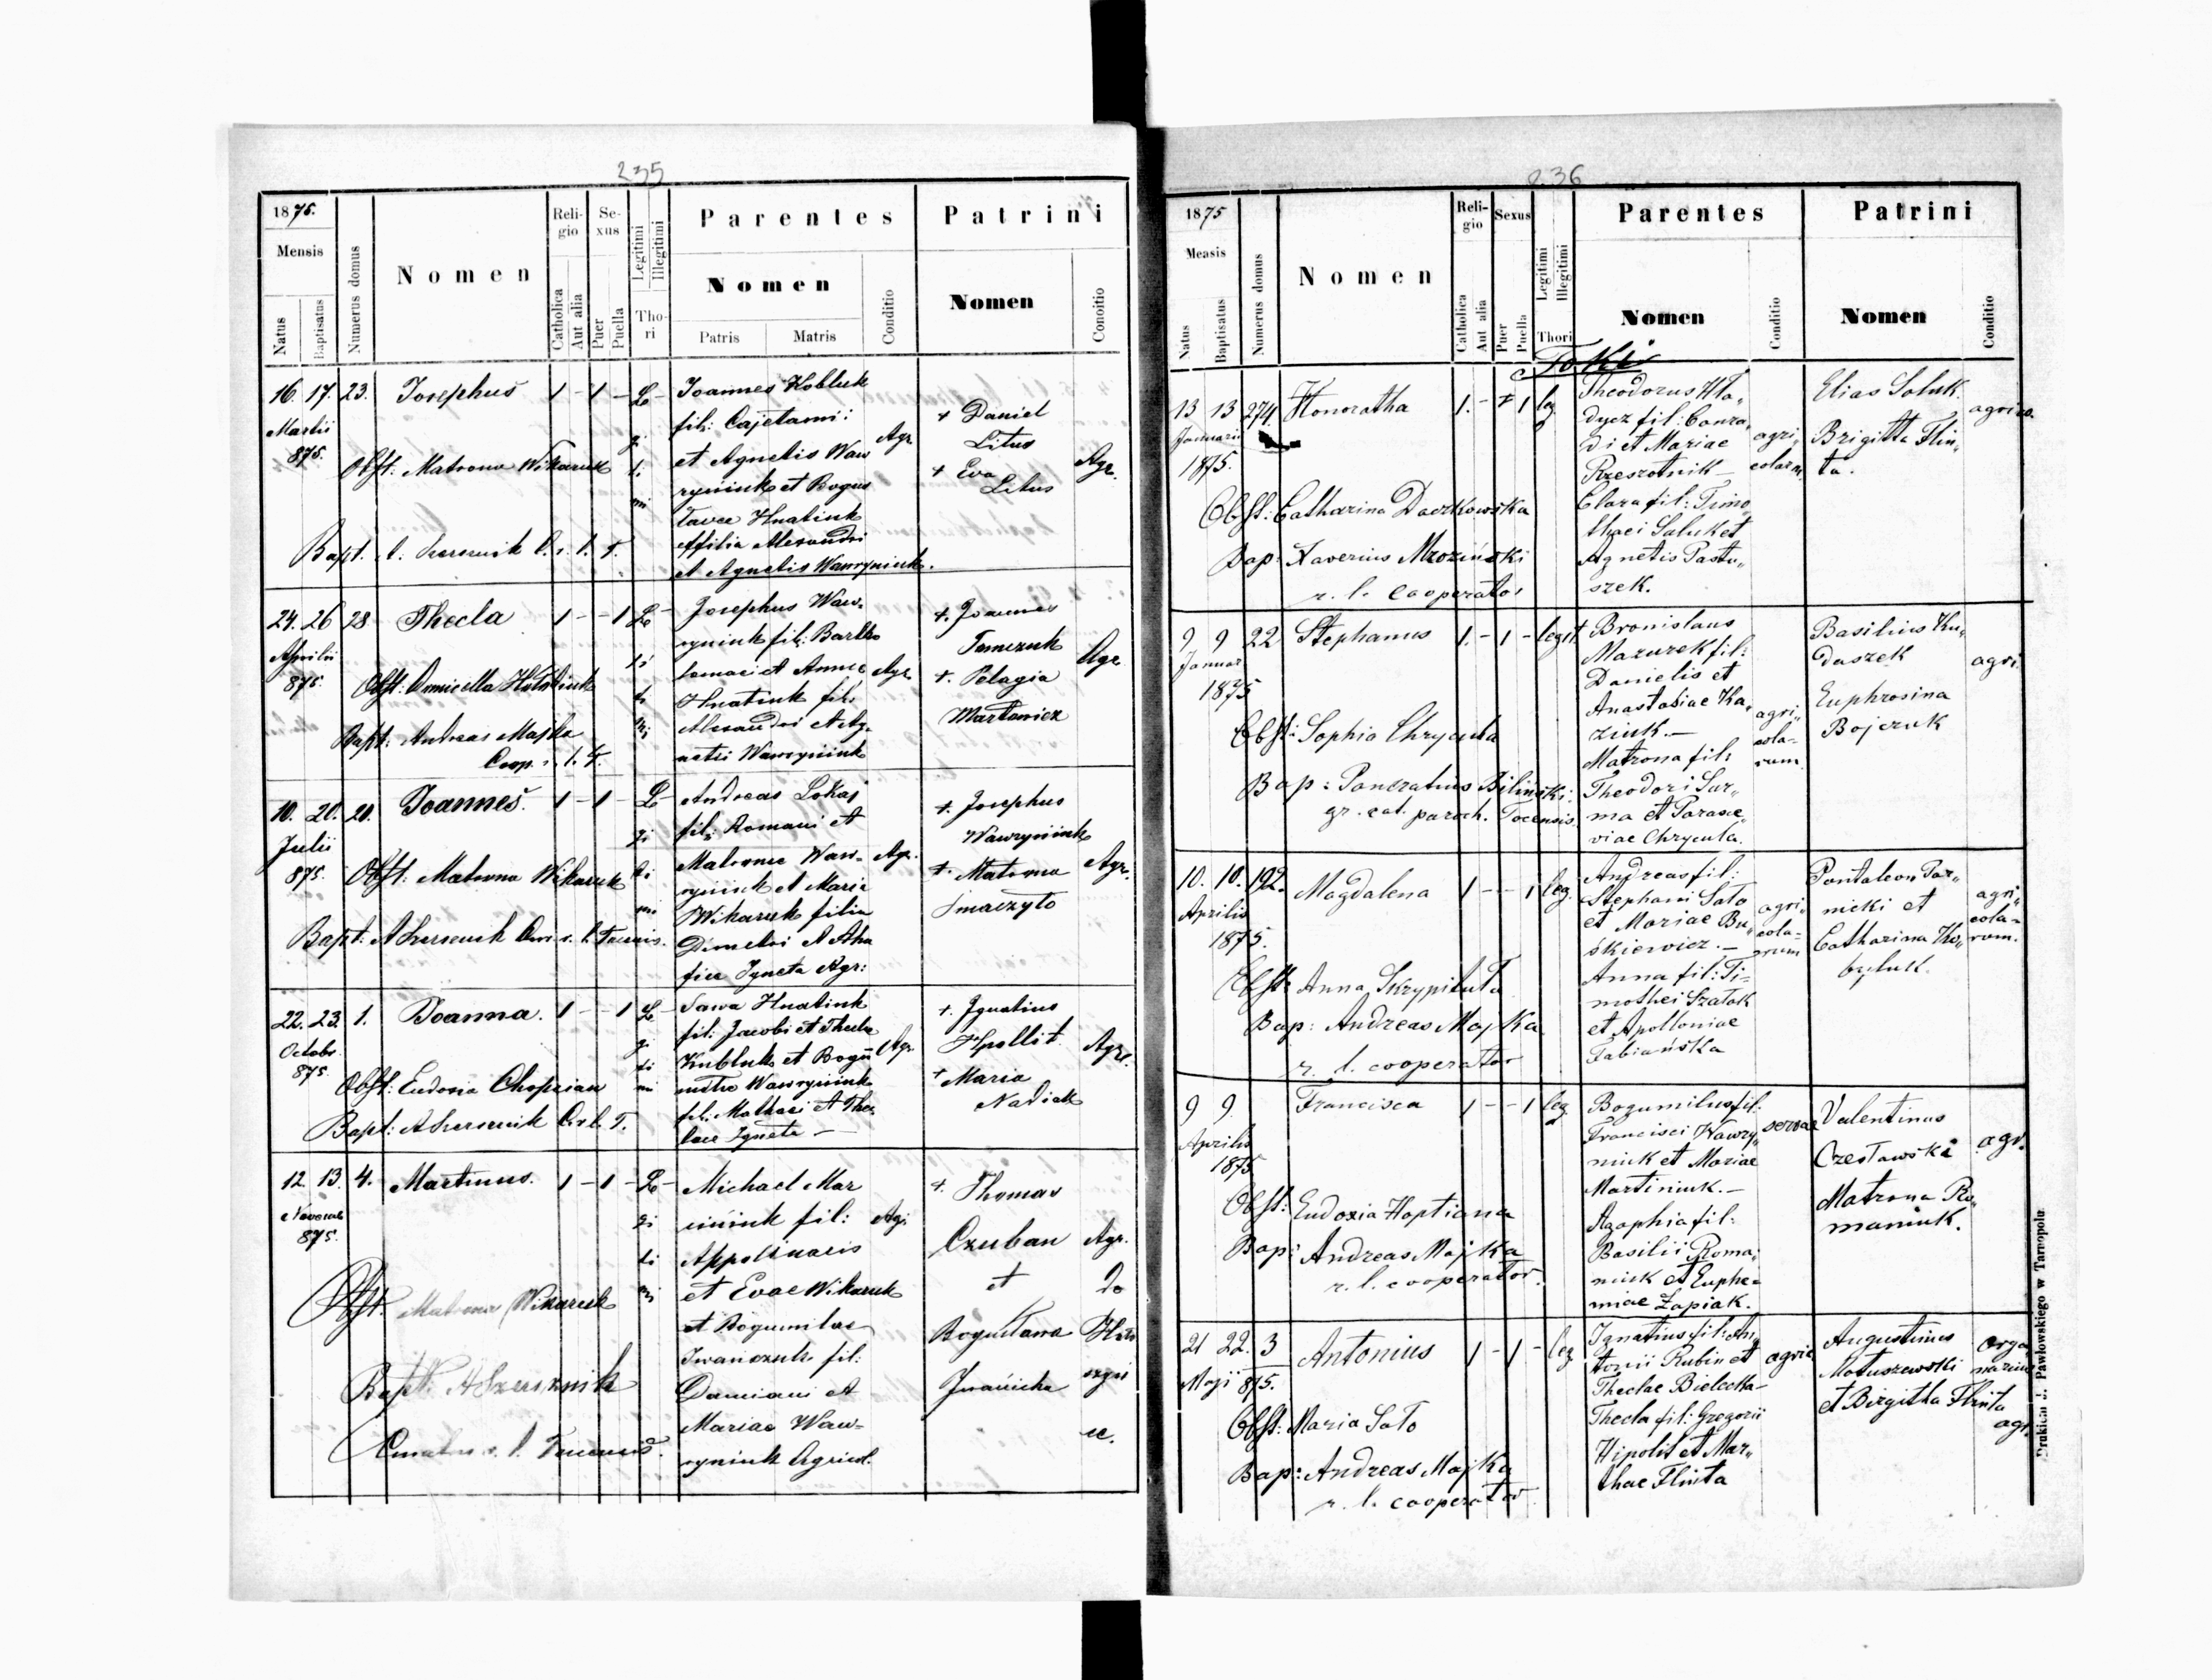 235
1875.
Mensis
Natus
Baptisatus
Numerus domus
Nomen
Reli-
gio
Catholica
Aut alia
Se-
xus
Puer
Puella
Legitimi
Illegitimi
Tho-
ri
Parentes
Nomen
Patris
Matris
Conditio
Patrini
Nomen
Conditio
16. 17. 23. Josephus 1 - 1 - Le
Martii
875.
Obst: Matrona Wikaruk
Bapt.
gi
ti
mi
Joannes Kobluk
fil: Cajetani
et Agnetis Waw
ryniuk et Bogus
lavae Hnatiuk
filia Alexandri
et Agnetis Wawryniuk.
Agr.
+ Daniel
Litus
+ Eva
Litus
Agr.
24. 26 28 Thecla 1 - - 1 Le
Aprilis
875.
Obst:
Bapt: Andreas Majka
Coop. r. l. T.
gi
ti
mi
Josephus Waw-
ryniuk fil: Bartho
lomaei et Annae
Hnatiuk fil:
Alexandri et Ag-
netis Wawryniuk
Agr.
+. Joannes
Tomczuk
+. Pelagia
Martowicz
Agr.
10. 20. 20. Joannes. 1 - 1 - Le
Julii
875.
Obst: Matrona Wikaruk
Bapt:
gi
ti
mi
Andreas Lokaj
fil: Romani et
Matronae Waw-
ryniuk et Maria
Wikaruk filia
Demetri et Aha
fiae Igneta Agr:
Agr.
+. Josephus
Wawryniuk
+. Matrona
Smaczyło
Agr.
22. 23. 1. Joanna. 1 - - 1 Le
Octobr.
875.
Obst: Eudoxia
Bapt:
gi
ti
mi
Sawa Hnatiuk
fil: Jacobi et Theclae
Kubluk et Bogu
Wawryniuk
fil: Mathaei et The-
clae Igneta -
Agr.
+. Ignatius
Hpollit
+ Maria
Nadiak
Agr.
12. 13. 4. Martinus. 1 - 1 - Le
Novemb.
875.
Obst. Matrona Wikaruk
Bapt: A Szersznik
Curatus r. l. Tocensis.
gi
ti
mi
Michael Mar
ciniuk fil:
Appolinaris
et Evae Wikaruk
et Bogumilae
Iwańczuk fil:
Damiani et
Mariae Waw-
ryniuk Agricol.
Agr.
+. Thomas
Czuban
et
Bogusława
Agr.
236
1875
Mensis
Natus
Baptisatus
Numerus domus
Nomen
Reli-
gio
Catholica
Aut alia
Sexus
Puer
Puella
Legitimi
Illegitimi
Thori
Parentes
Nomen
Conditio
Patrini
Nomen
Conditio
Toki
13 13 274. Honoratha 1. - 1 leg
Januarii
1875.
Obst: Catharina Daczkowska
Bap: Xaverius Mroziński
r. l. cooperator
Theodorus Hła„
dycz fil: Conra„
di et Mariae
Rzeszotnik -
Clara fil: Timo„
thaei Saluk et
Agnetis Pastu„
szek.
agri„
colarum.
Elias Soluk.
Brigitta Flin„
ta.
agrico.
9 9 22 Stephanus 1. - 1 - legit.
Januar
1875
Obst: Sophia Chrycula
Bap: Pancratius Biliński
gr. cat. paroch. Tocensis.
Bronislaus
Mazurek fil:
Danielis et
Anastasiae Ka„
ziuk. -
Matrona fil:
Theodori Sur„
ma et Parasce„
viae Chrycula.
agri„
cola-
rum.
Basilius Ku„
daszek
Euphrosina
Bojczuk
agri.
10. 10. 192. Magdalena 1 - - 1 leg.
Aprilis
1875.
Obst: Anna Skrypiluta
Bap: Andreas Majka
r. l. cooperator
Andreas fil:
Stephani Sato
et Mariae Bu„
śkiewicz. -
Anna fil: Ti=
mothei Szatok
et Apolloniae
Fabiańska
agri„
cola=
rum
Pantaleon Tar„
nicki et
Catharina Ko„
byluk.
agri„
cola=
rum.
9 9. Francisca 1 - - 1 leg.
Aprilis
1875
Obst: Eudoxia Hoptiana
Bap: Andreas Majka
r. l. cooperator.
Bogumilus fil:
Francisci Wawry„
niuk et Mariae
Martiniuk. -
Agaphia fil:
Basilii Roma„
niuk et Euphe=
miae Łapiak.
servae
Valentinus
Czesławski
Matrona Ro„
maniuk.
agr.
21 22. 3 Antonius 1 - 1 - leg
Maji 875.
Obst: Maria Sato
Bap: Andreas Majka
r. l. cooperator
Ignatius fil: An„
tonii Rubin et
Theclae Bielecka-
Thecla fil: Gregorii
Hipolit et Mar„
thae Flinta
agric
Augustinus
Matuszewski
et Birgitha Flinta
orga„
narius
agr.
Drukiem J. Pawłowskiego w Tarnopolu